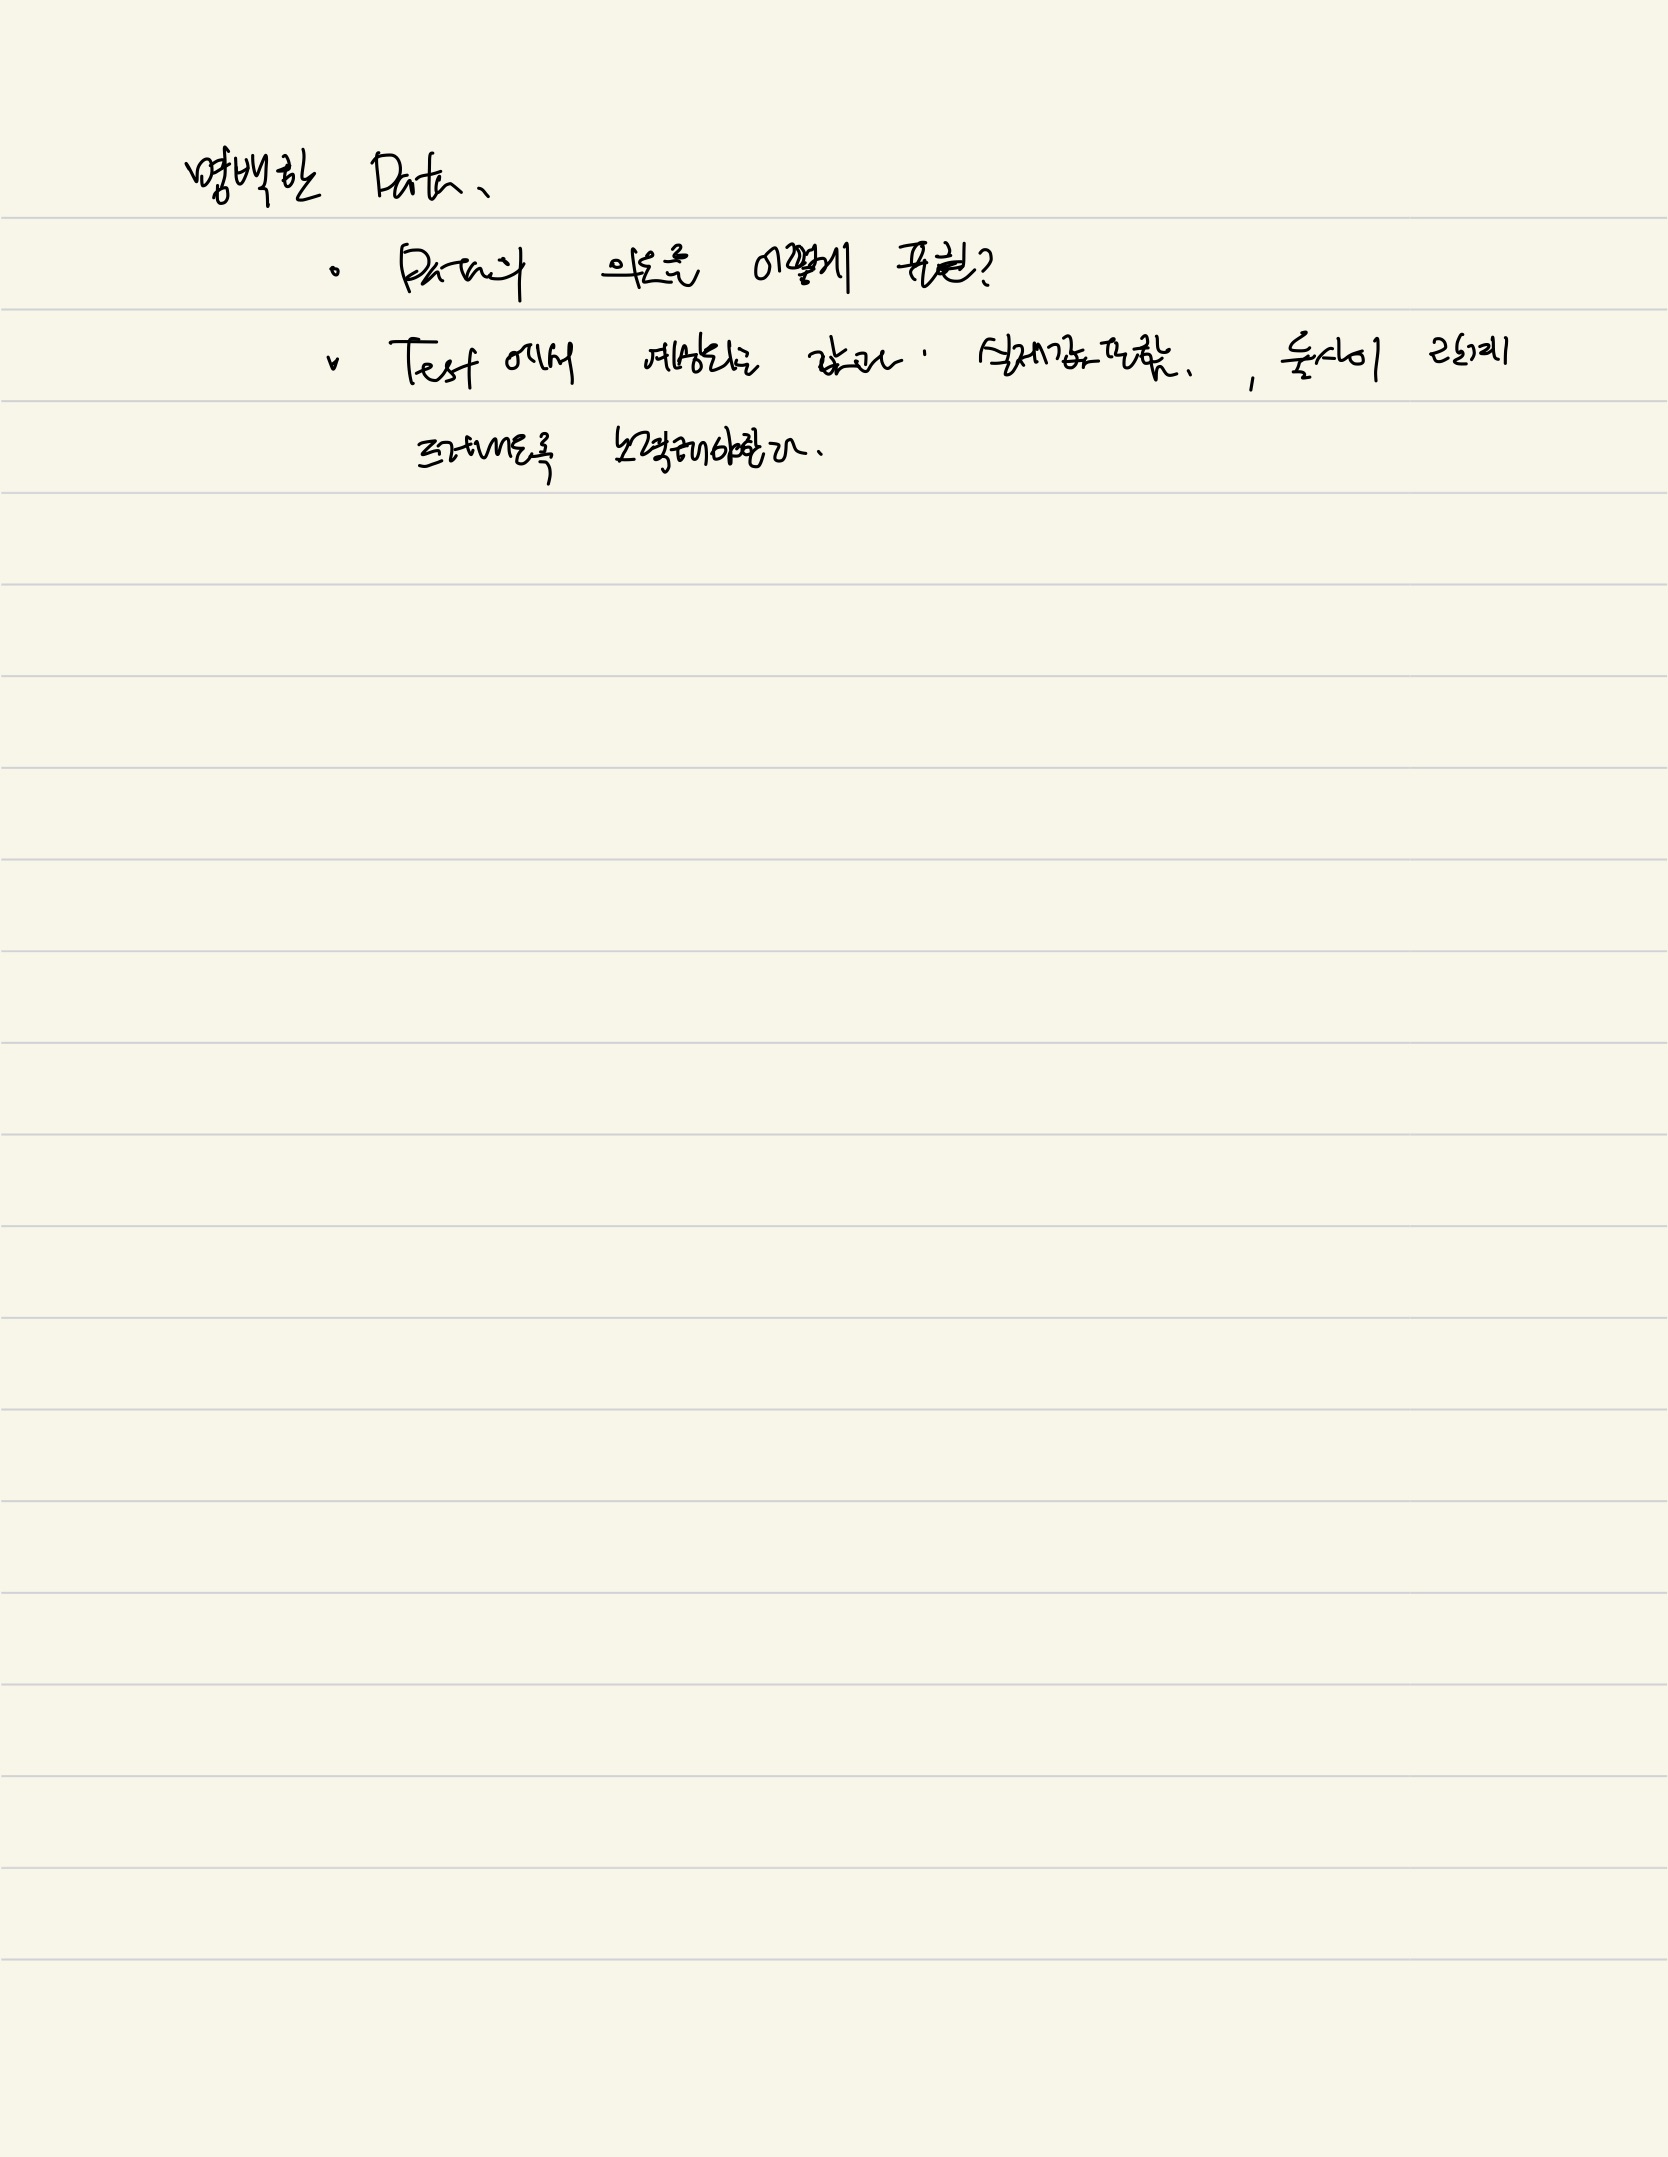 명백한 Data.
• Data의 의도를 어떻게 표현?
• Test 에서 예상되는 값과 실제값을 포함. , 둘사이 관계
드러내도록 노력해야한다.